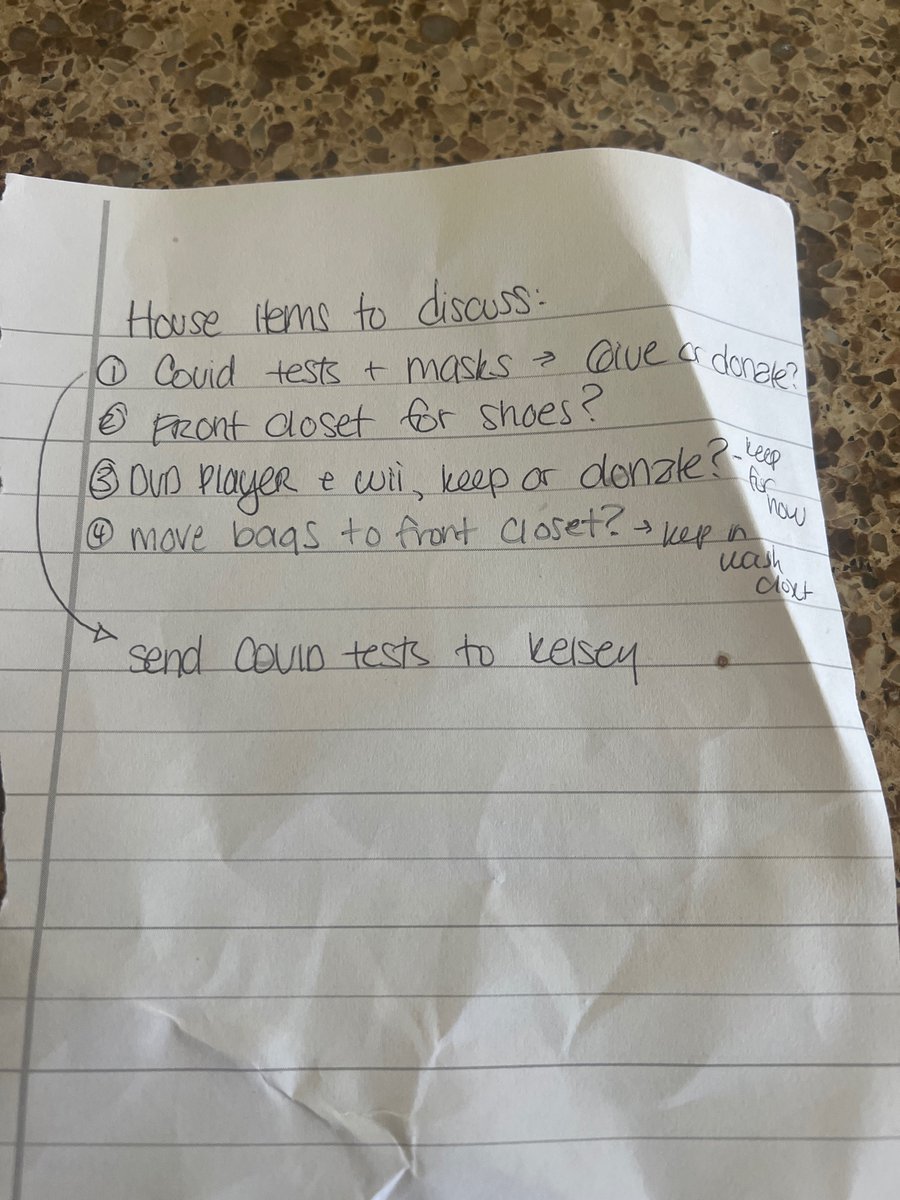 House items to discuss:
① Covid tests + masks → Give or donate?
② Front closet for shoes?
③ DVD Player + wii, keep or donate? - keep
for
now
④ move bags to front closet? → keep in
wash
closet
send COVID tests to Kelsey